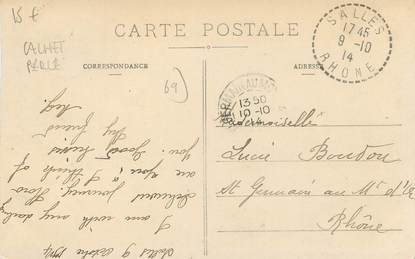 15 €
CACHET
PERLE
69
CARTE POSTALE
CORRESPONDANCE
ADRESSE
SALLES
17 45
9 -10
14
RHONE
13 50
10-10
14
Mademoiselle
Lucie Boudon
St Germain au Mt d'Or
Rhône
Salles 9 Octobre 1914
I am with my darling
are you? I think of
you. Good kisses
My friend